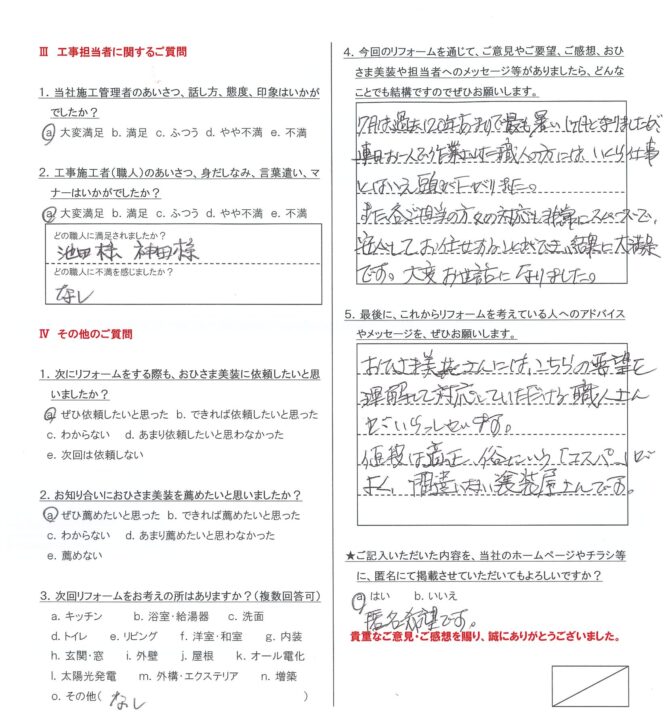 Ⅲ 工事担当者に関するご質問
1. 当社施工管理者のあいさつ、話し方、態度、印象はいかが
でしたか？
a 大変満足 b. 満足 c. ふつう d. やや不満 e. 不満
2. 工事施工者(職人)のあいさつ、身だしなみ、言葉遣い、マ
ナーはいかがでしたか？
a 大変満足 b. 満足 c. ふつう d. やや不満 e. 不満
どの職人に満足されましたか？
池田様 神田様
どの職人に不満を感じましたか？
なし
Ⅳ その他のご質問
1. 次にリフォームをする際も、おひさま美装に依頼したいと思
いましたか？
a ぜひ依頼したいと思った b. できれば依頼したいと思った
c. わからない d. あまり依頼したいと思わなかった
e. 次回は依頼しない
2. お知り合いにおひさま美装を薦めたいと思いましたか？
a ぜひ薦めたいと思った b. できれば薦めたいと思った
c. わからない d. あまり薦めたいと思わなかった
e. 薦めない
3. 次回リフォームをお考えの所はありますか？(複数回答可)
a. キッチン b. 浴室・給湯器 c. 洗面
d.トイレ e. リビング f. 洋室・和室 g. 内装
h. 玄関・窓 i. 外壁 j. 屋根 k. オール電化
l. 太陽光発電 m. 外構・エクステリア n. 増築
o. その他( なし )
4. 今回のリフォームを通じて、ご意見やご要望、ご感想、おひ
さま美装や担当者へのメッセージ等がありましたら、どんな
ことでも結構ですのでぜひお願いします。
7月は過去120年あまりで最も暑い1ヶ月となりましたが
連日お二人で作業された職人の方には、いくら仕事
とはいえ頭が下がりました。
また各ご担当の方々の対応も非常にスムーズで、
安心してお任せすることができ、結果に大満足
です。大変お世話になりました。
5. 最後に、これからリフォームを考えている人へのアドバイス
やメッセージを、ぜひお願いします。
おひさま美装さんには、こちらの要望を
理解して対応していただける職人さん
がいらっしゃいます。
値段は適正、俗にいう「コスパ」が
よく、間違いない塗装屋さんです。
★ご記入いただいた内容を、当社のホームページやチラシ等
に、匿名にて掲載させていただいてもよろしいですか？
a はい b. いいえ
匿名希望です。
貴重なご意見・ご感想を賜り、誠にありがとうございました。